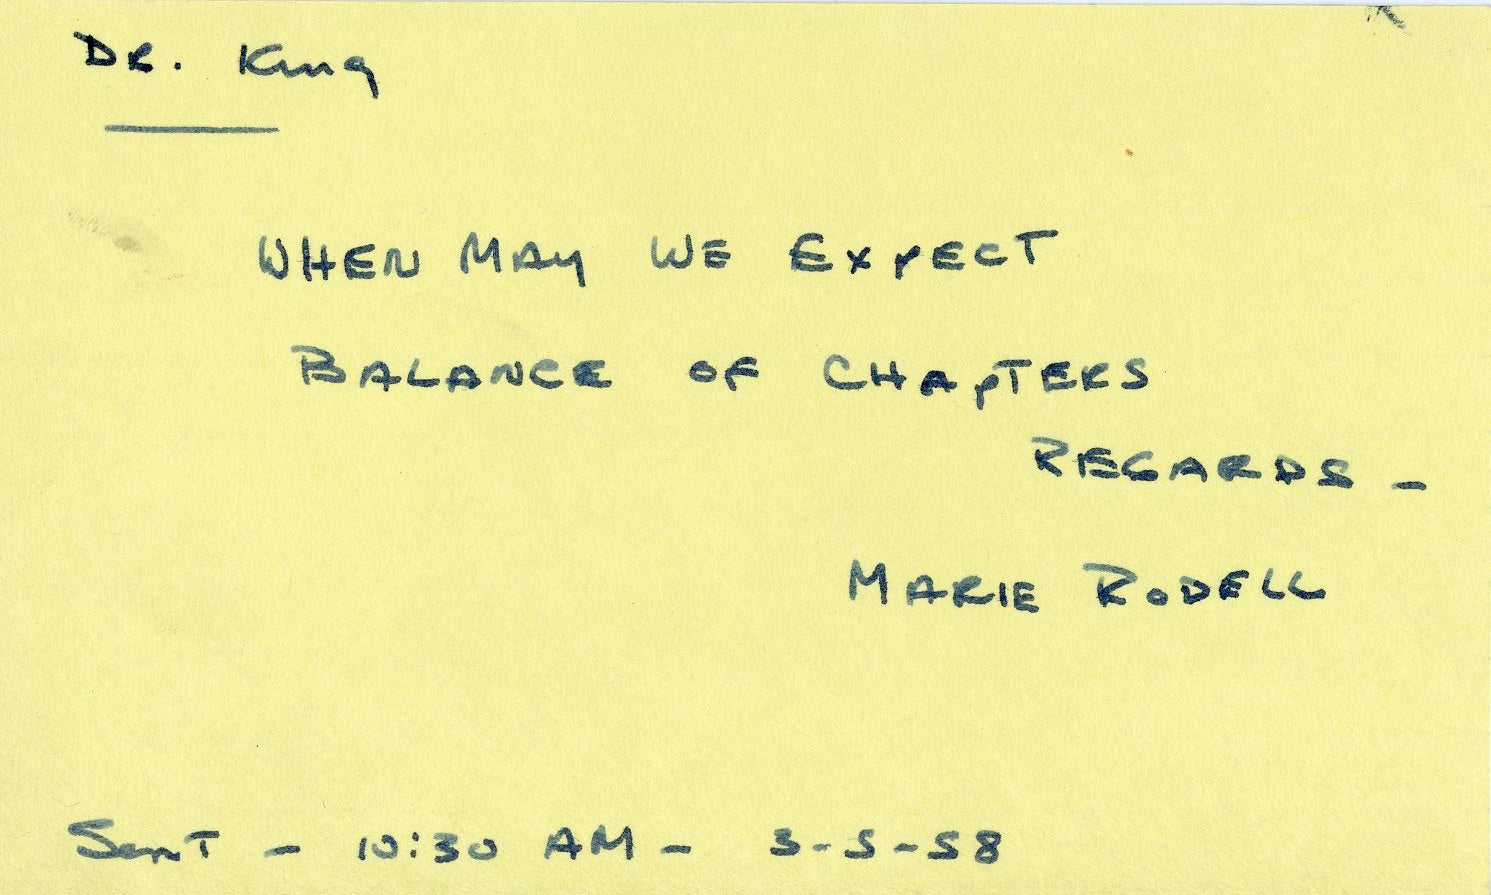 Dr. King
WHEN MAY WE EXPECT
BALANCE OF CHAPTERS
REGARDS -
MARIE RODELL
Sent - 10:30 AM - 3-5-58